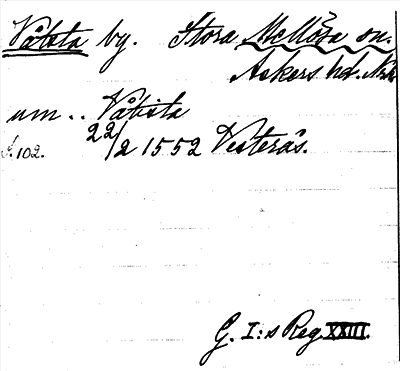 Våbsta by. Stora Mellösa sn.
Askers hd. Nrk
um .. Våbista
s. 102. 22/2 1552 Vesterås.
G. I:s Reg. XXIII.